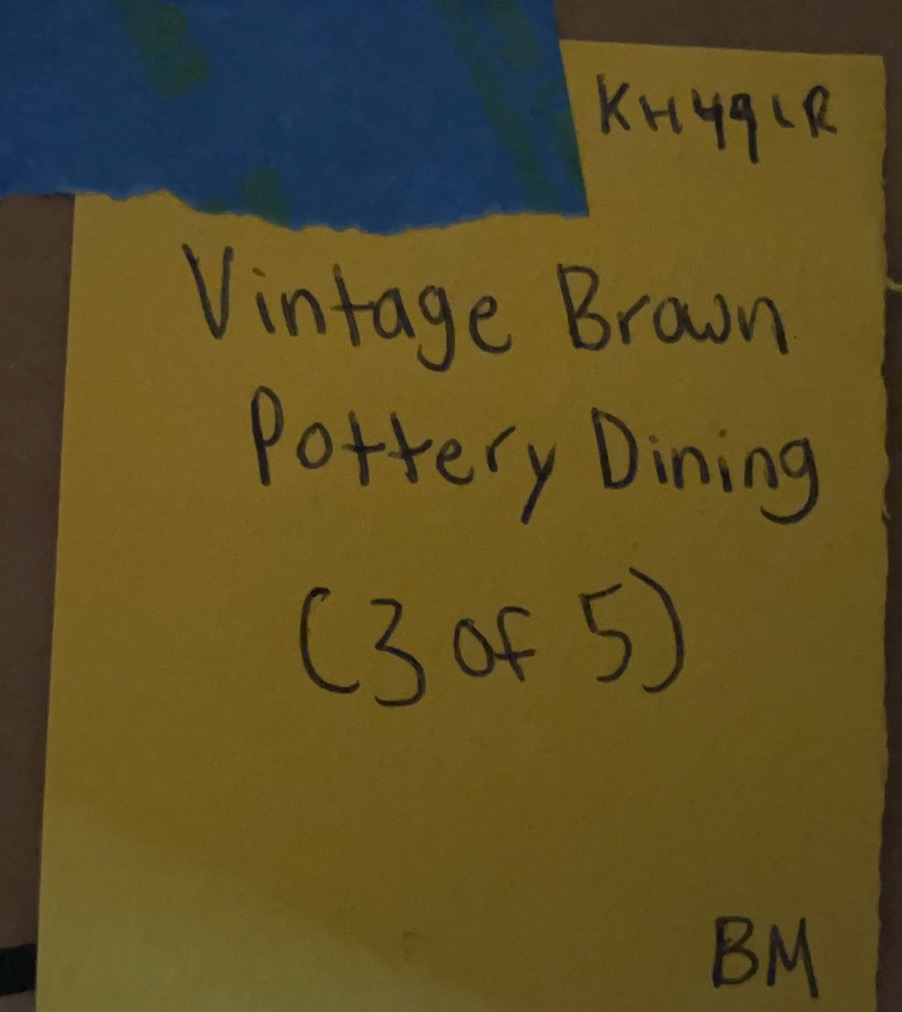 KH49LR
Vintage Brown
Pottery Dining
(3 of 5)
BM